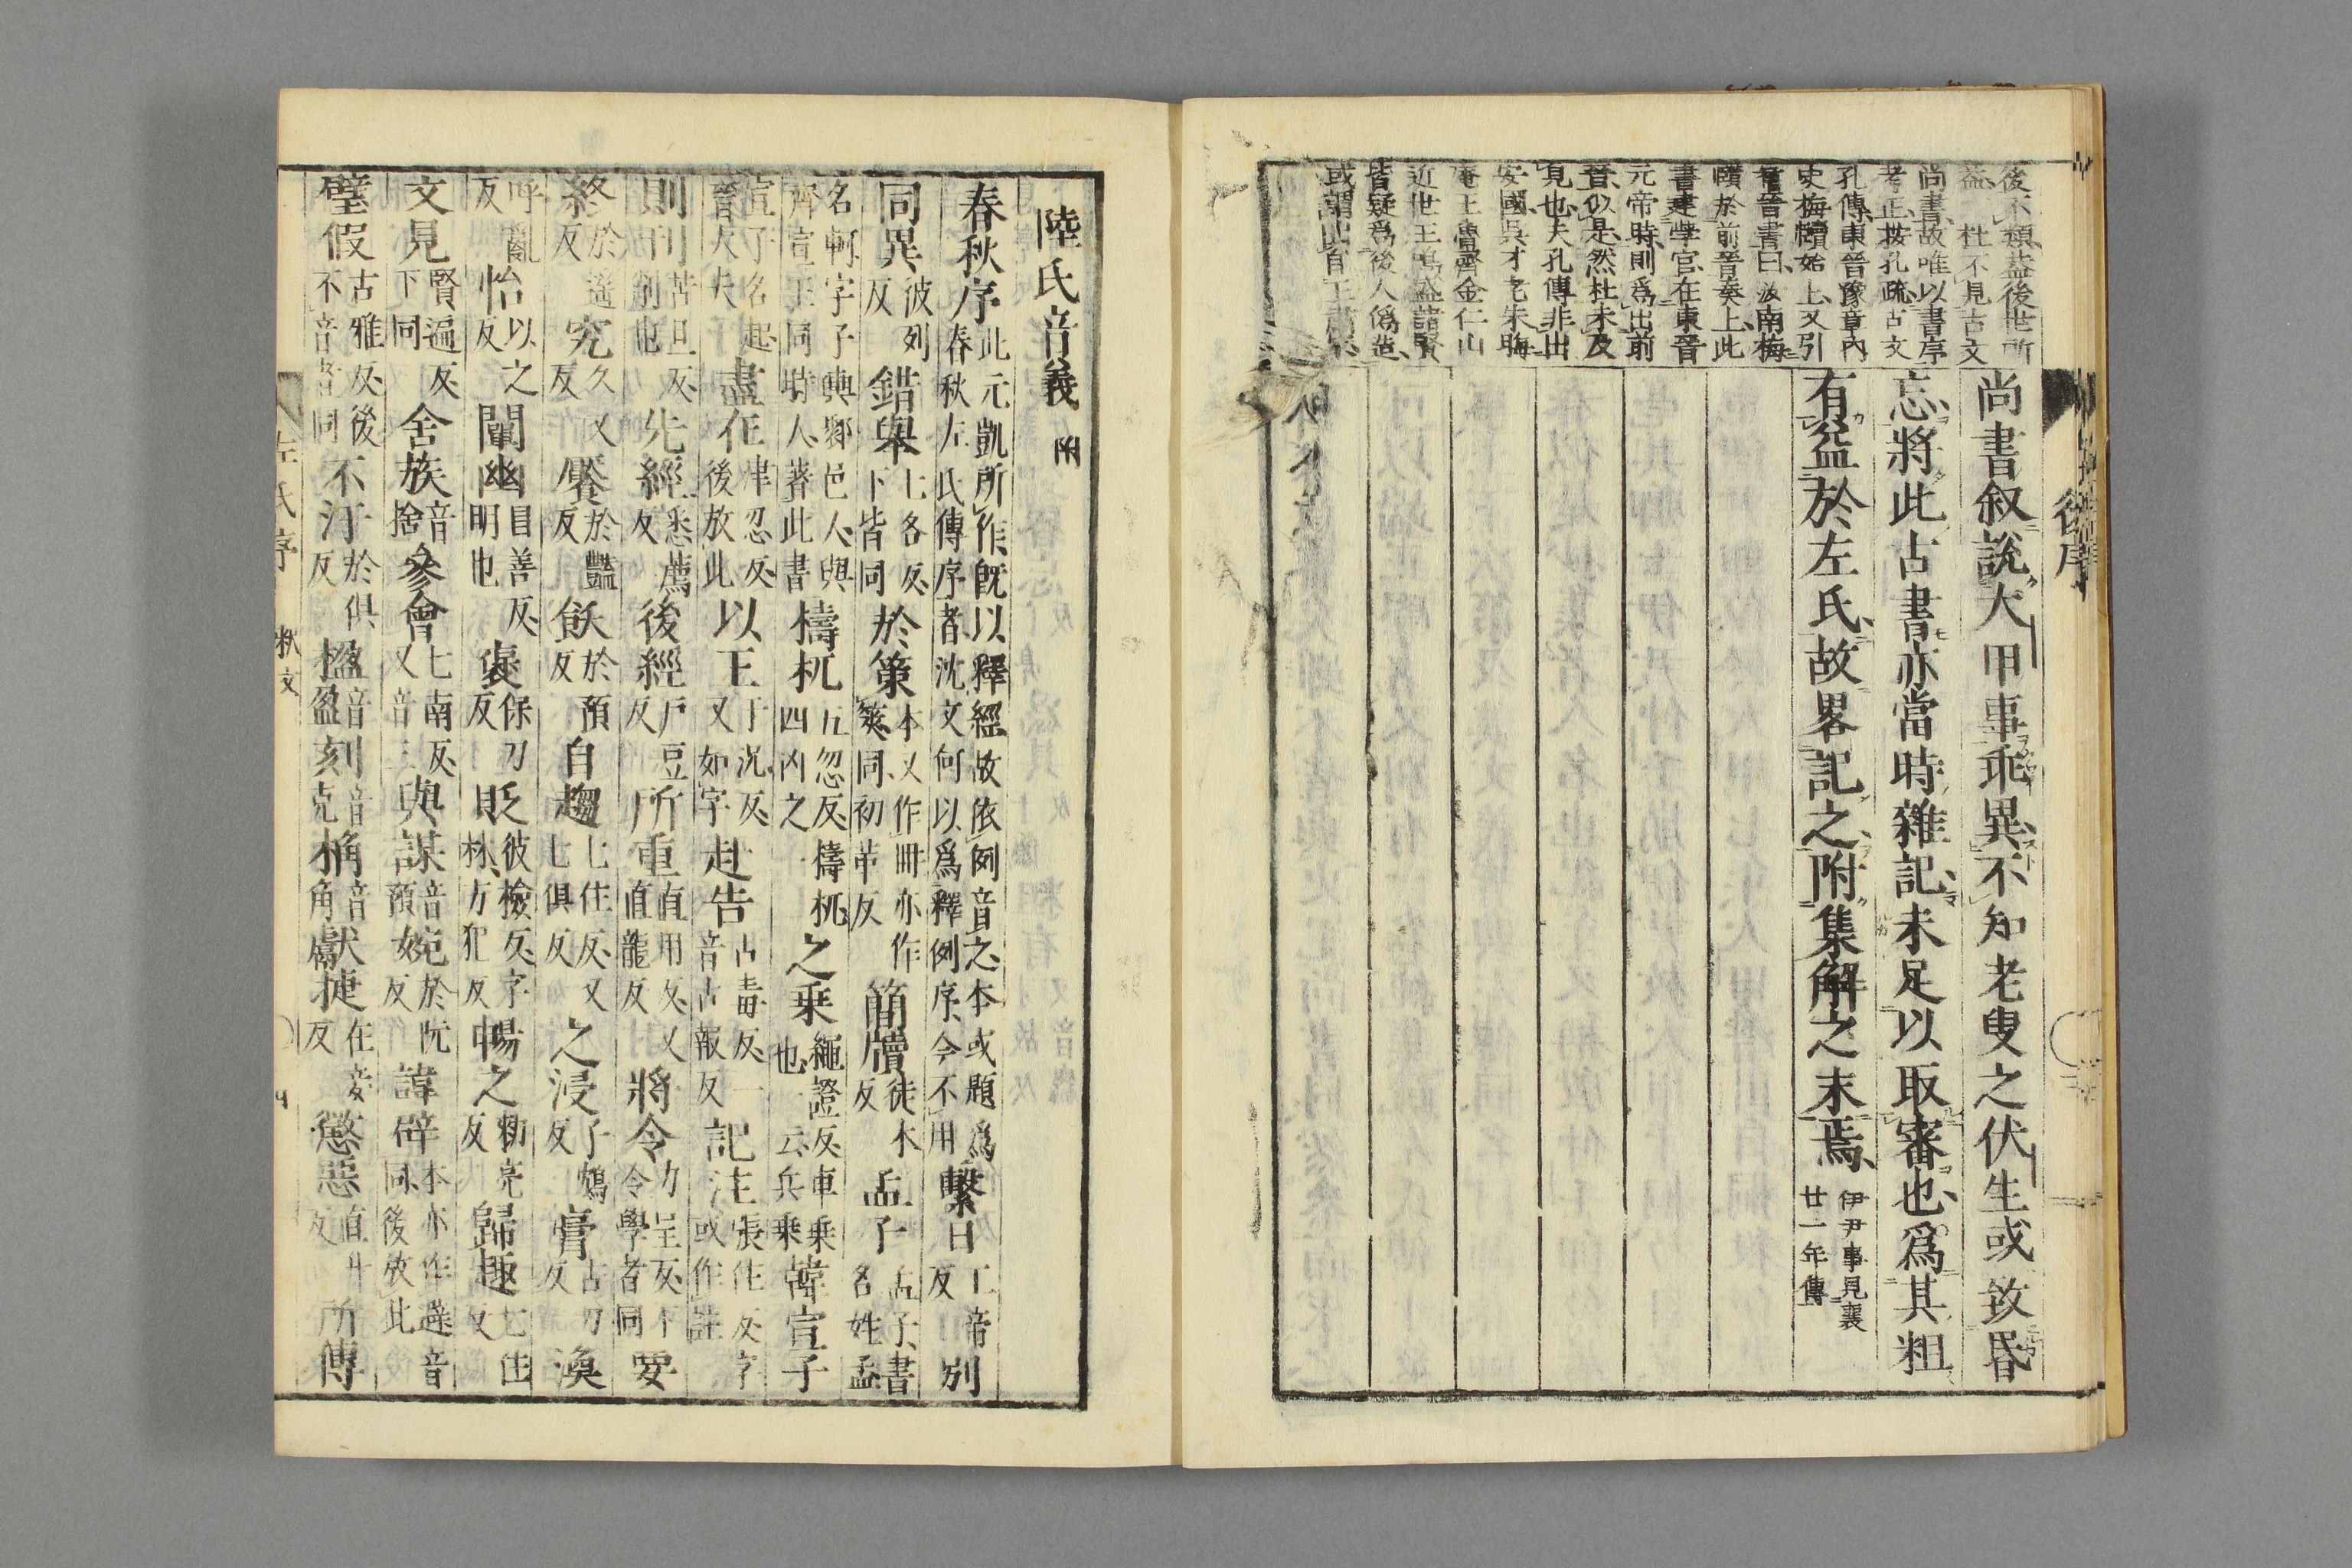 後序
後不類蓋後世所
益 杜不見古文
尚書故唯以書序
考正按孔疏古文
孔傳東晉豫章內
史梅賾始上又引
晉書曰南梅
賾於前晉奏上此
書建學官在東晉
元帝時則爲出前
晉似是然杜未及
見也夫孔傳非出
安國吳才老朱晦
庵王魯齋金仁山
近世王鳴盛諸賢
皆疑爲後人僞造
尚書叙說大甲事乖異不知老叟之伏生或致昏
忘將此古書亦當時雜記未足以取審也爲其粗
有益於左氏故畧記之附集解之末焉 伊尹事見襄
廿一年傳
陸氏音義 附
春秋序 此元凱所作旣以釋經故依例音之本或題爲
春秋左氏傳序者沈文何以爲釋例序今不用 繫日 工帝反 別
同異 彼列反 錯舉 七各反下皆同 於策 本又作冊亦作筴同初革反 簡牘 徒木反 孟子 孟子書名姓孟
名軻字子輿鄒邑人與齊宣王同時人著此書 檮杌 五忽反檮杌四凶之一 之乘 繩證反車乘也一云兵乘 韓宣子
宣子名起晉大夫 盡在 津忍反後放此 以王 于況反又如字 赴告 古毒反一音古報反 記注 張住反字或作註
則刊 苦旦反削也 先經 悉薦反 後經 戶豆反 所重 直用反又直龍反 將令 力呈反下令學者同 要
終 於遥反 究 久又反 饜 於豔反 飫 於預反 自趨 七住反又七俱反 之浸 子鴆反 膏 古刀反 渙
呼亂反 怡 以之反 闡幽 昌善反明也 襃 保刀反 貶 彼檢反字林方犯反 暢之 勑亮反 歸趣 七住反
文見 賢遍反下同 舍族 音捨 參會 七南反又音三 與謀 音預 婉 於阮反 諱辟 本亦作避音同後放此
璧假 古雅反後不音者同 不汙 於俱反 楹 音盈 刻 音克 桷 音角 獻捷 在妾反 懲惡 直升反 所傳
左氏序 釈文 四